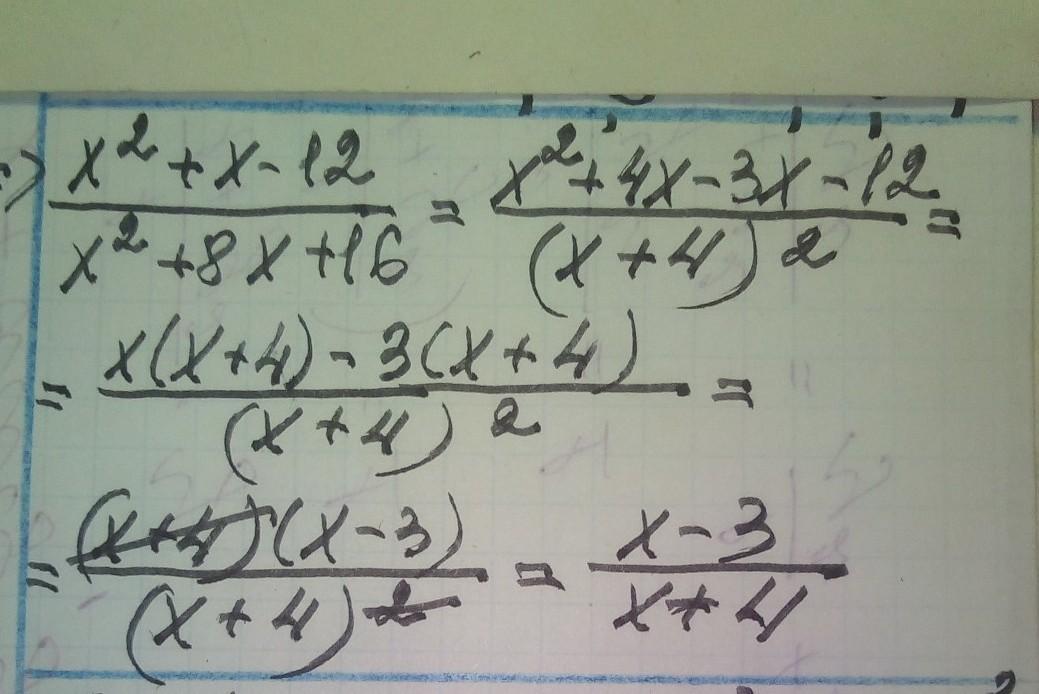 ) (x² + x - 12)/(x² + 8x + 16) = (x² + 4x - 3x - 12)/(x + 4)² =
= (x(x + 4) - 3(x + 4))/(x + 4)² =
= ((x + 4)(x - 3))/(x + 4)² = (x - 3)/(x + 4)